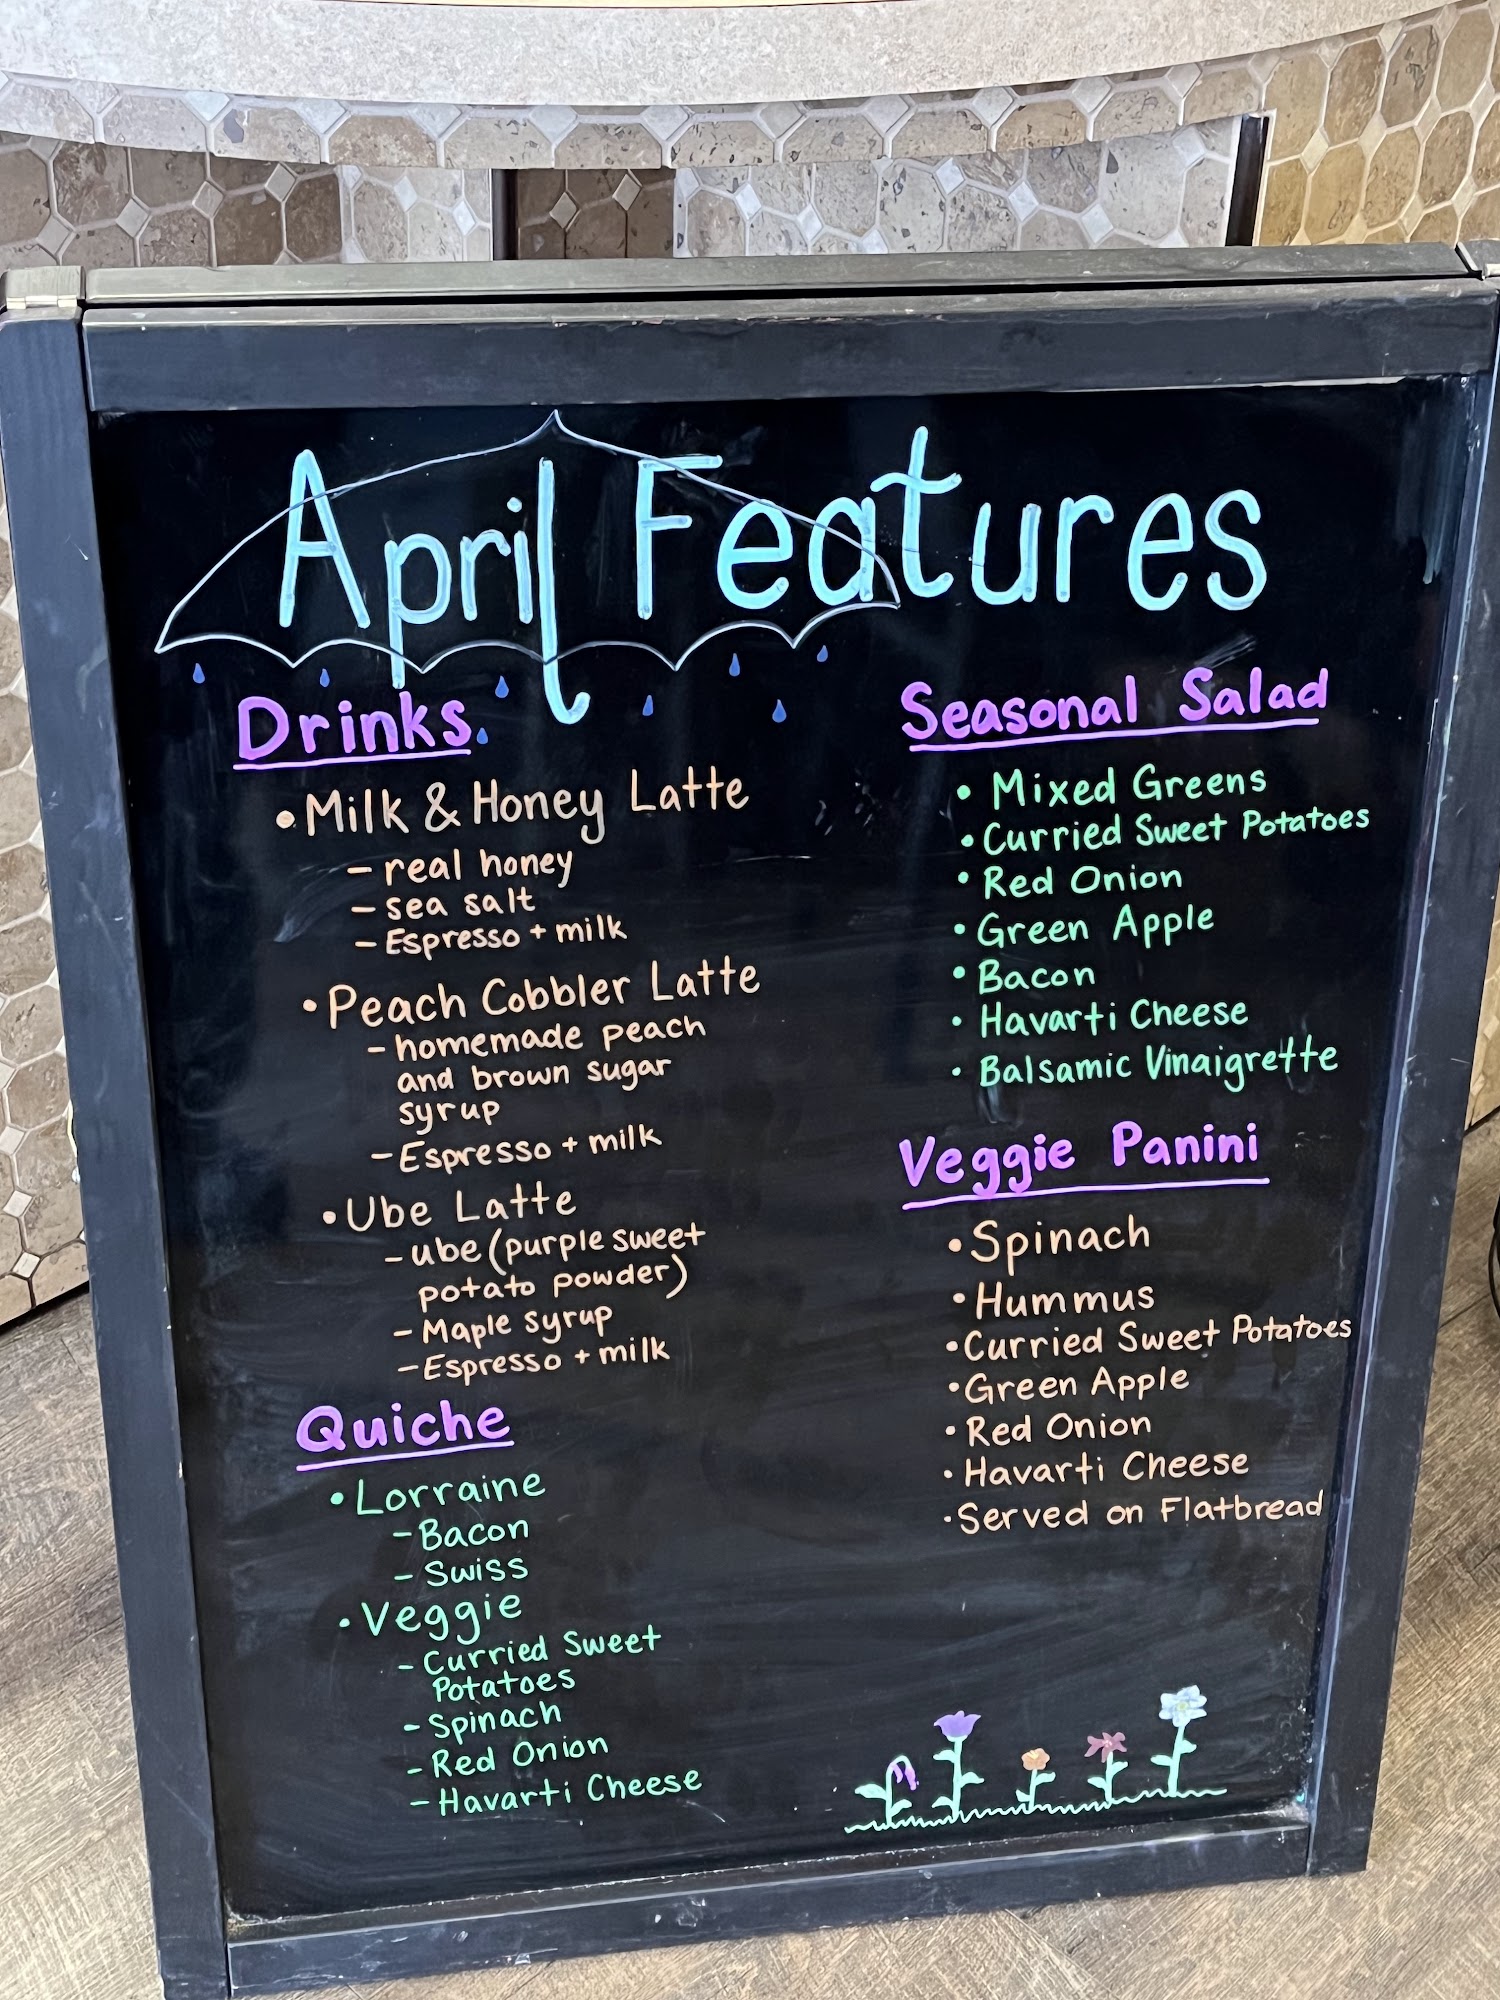 April Features
Drinks
• Milk & Honey Latte
- real honey
- sea salt
- Espresso + milk
• Peach Cobbler Latte
- homemade peach
and brown sugar
syrup
- Espresso + milk
• Ube Latte
- ube (purple sweet
potato powder)
- Maple syrup
- Espresso + milk
Quiche
• Lorraine
- Bacon
- Swiss
• Veggie
- Curried Sweet
Potatoes
- Spinach
- Red Onion
- Havarti Cheese
Seasonal Salad
• Mixed Greens
• Curried Sweet Potatoes
• Red Onion
• Green Apple
• Bacon
• Havarti Cheese
• Balsamic Vinaigrette
Veggie Panini
• Spinach
• Hummus
• Curried Sweet Potatoes
• Green Apple
• Red Onion
• Havarti Cheese
• Served on Flatbread